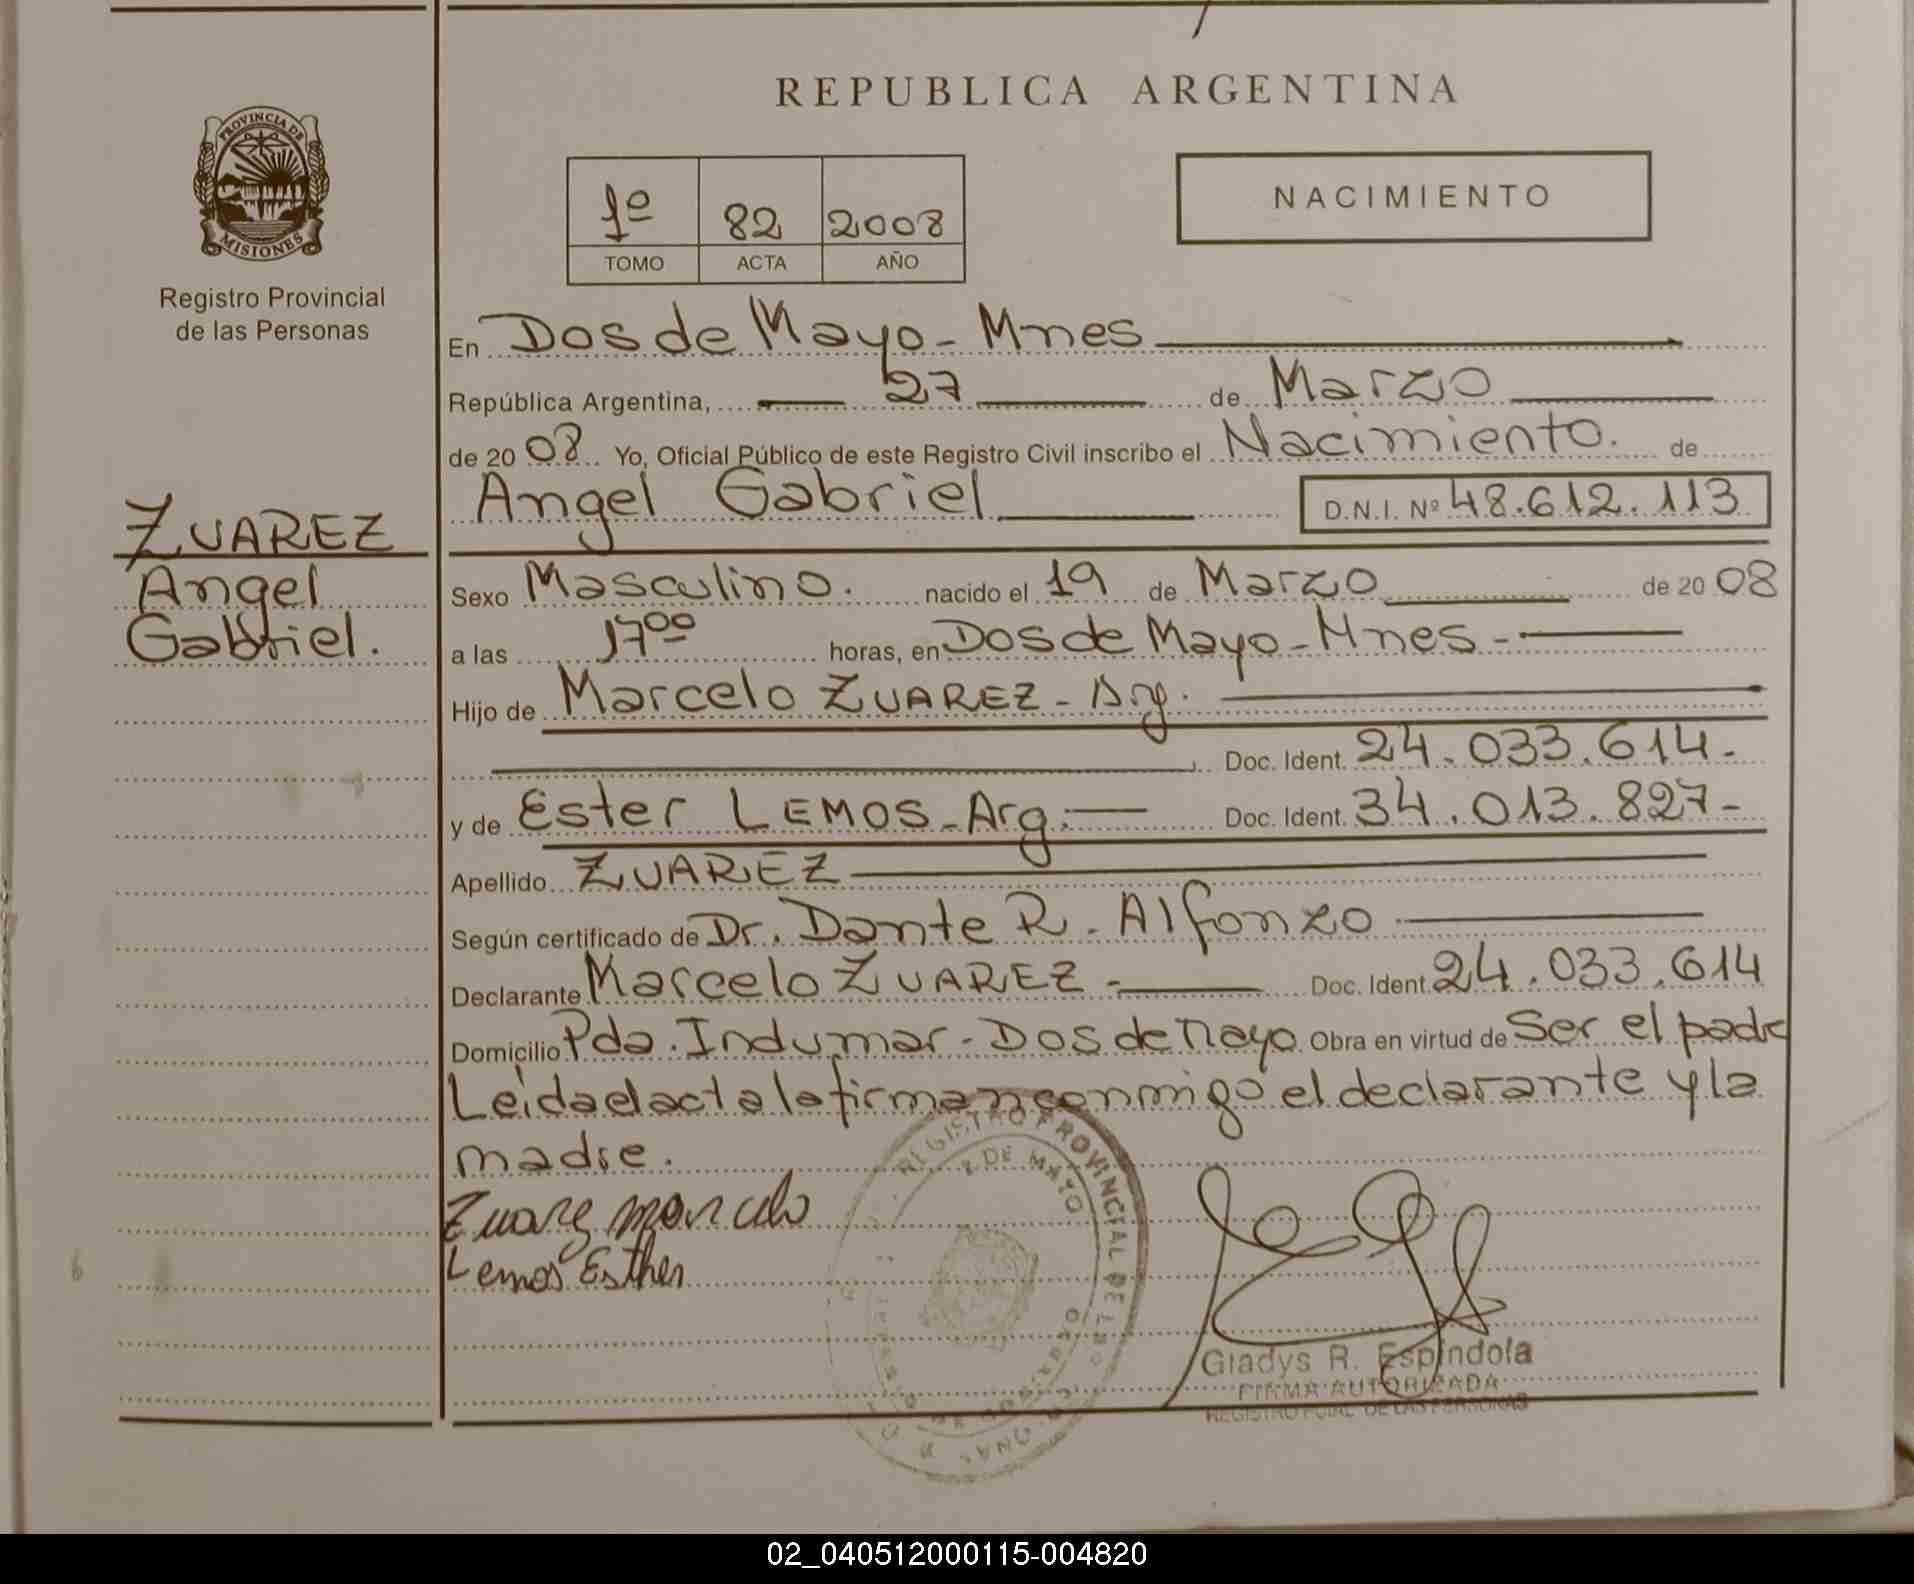 REPUBLICA ARGENTINA
PROVINCIA DE
MISIONES
Registro Provincial
de las Personas
1º 82 2008
TOMO ACTA AÑO
NACIMIENTO
En Dos de Mayo - Mnes
República Argentina, 27 de Marzo
de 20 08 Yo, Oficial Público de este Registro Civil inscribo el Nacimiento. de
Angel Gabriel D.N.I. Nº 48.612.113
ZUAREZ
Angel
Gabriel.
Sexo Masculino. nacido el 19 de Marzo de 20 08
a las 17 00 horas, en Dos de Mayo - Mnes -
Hijo de Marcelo ZUAREZ - Arg.
Doc. Ident. 24.033.614-
y de Ester LEMOS - Arg. Doc. Ident. 34.013.827-
Apellido ZUAREZ
Según certificado de Dr. Dante R. Alfonzo
Declarante Marcelo ZUAREZ - Doc. Ident. 24.033.614
Domicilio Pda. Indumar - Dos de Mayo Obra en virtud de Ser el padre
Leida el acta la firman conmigo el declarante y la
madre.
REGISTRO PROVINCIAL DE
2 DE MAYO
Zuarez Marcelo
Lemos Esther
Gladys R. Espíndola
FIRMA AUTORIZADA
REGISTRO PCIAL. DE LAS PERSONAS
02_040512000115-004820